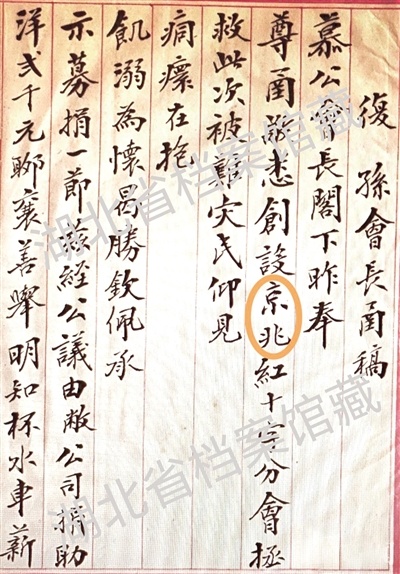 復 孫會長函稿
慕公會長閣下昨奉
尊函敬悉創設京兆紅十字分會拯
救此次被難灾民仰見
痌瘝在抱
飢溺為懷曷勝欽佩承
示募捐一節茲經公議由敝公司捐助
洋弍千元聊襄善舉明知杯水車薪
湖北省档案馆藏
湖北省档案馆藏